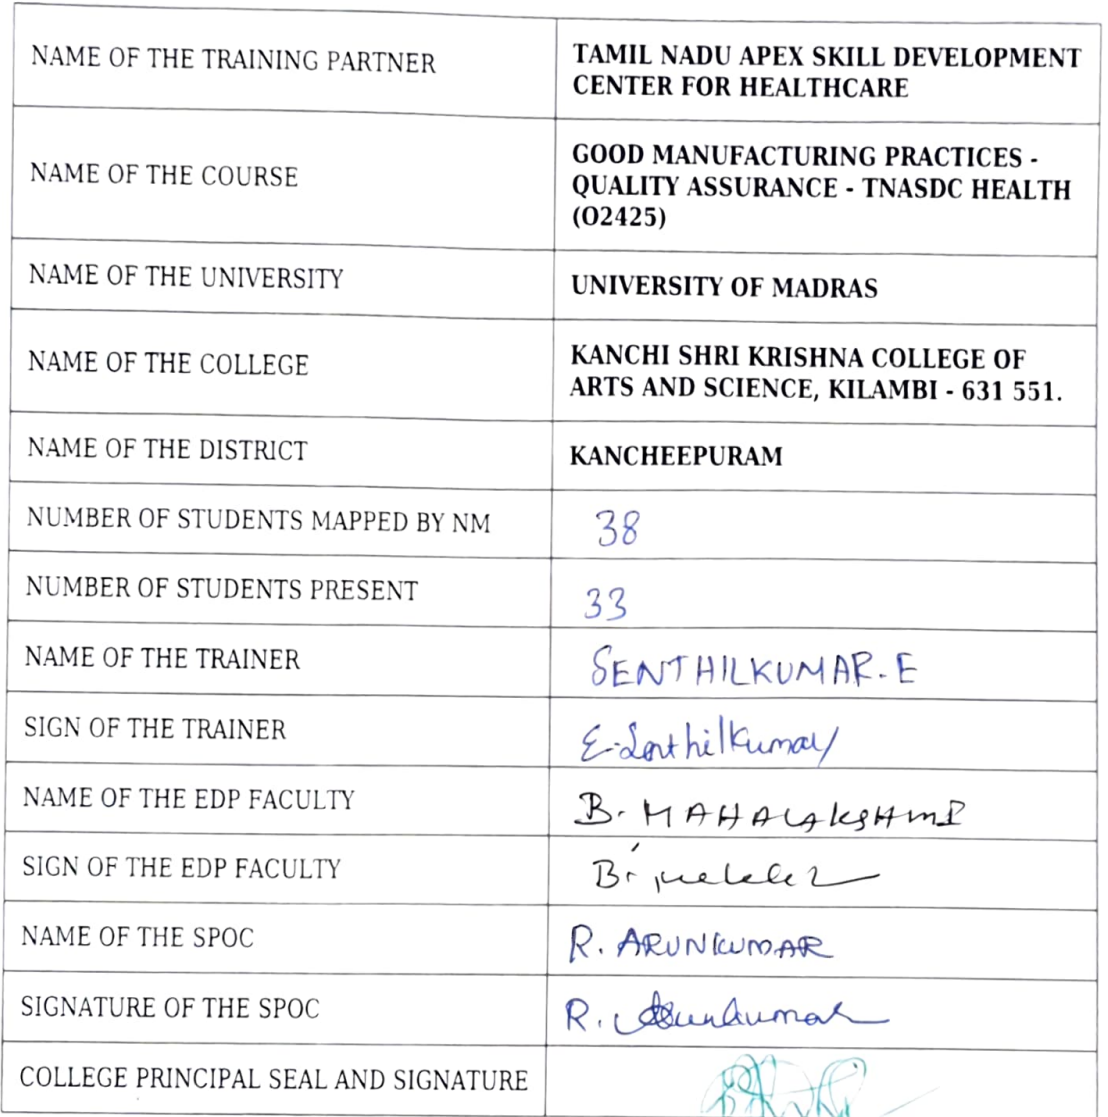 NAME OF THE TRAINING PARTNER
TAMIL NADU APEX SKILL DEVELOPMENT
CENTER FOR HEALTHCARE
NAME OF THE COURSE
GOOD MANUFACTURING PRACTICES -
QUALITY ASSURANCE - TNASDC HEALTH
(O2425)
NAME OF THE UNIVERSITY
UNIVERSITY OF MADRAS
NAME OF THE COLLEGE
KANCHI SHRI KRISHNA COLLEGE OF
ARTS AND SCIENCE, KILAMBI - 631 551.
NAME OF THE DISTRICT
KANCHEEPURAM
NUMBER OF STUDENTS MAPPED BY NM
38
NUMBER OF STUDENTS PRESENT
33
NAME OF THE TRAINER
SENTHILKUMAR. E
SIGN OF THE TRAINER
E. Senthilkumar
NAME OF THE EDP FACULTY
B. MAHALAKSHMI
SIGN OF THE EDP FACULTY
B.
NAME OF THE SPOC
R. ARUNKUMAR
SIGNATURE OF THE SPOC
R. Arunkumar
COLLEGE PRINCIPAL SEAL AND SIGNATURE